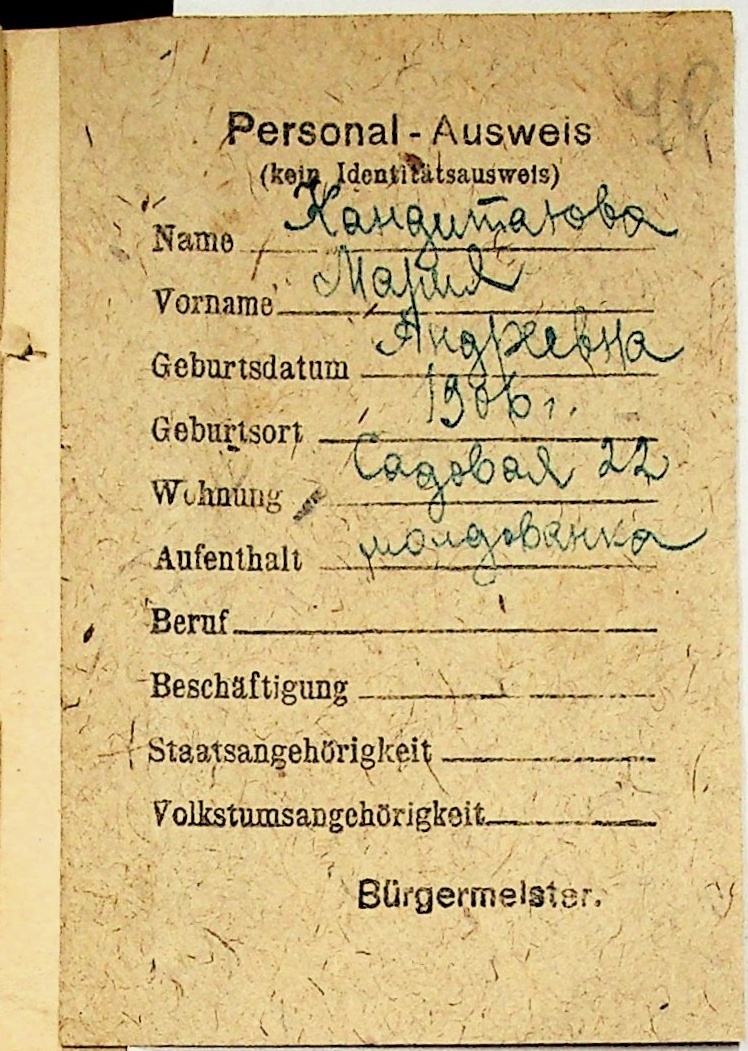 Personal - Ausweis
(kein Identitätsausweis)
Name Кандитатова
Vorname Мария
Geburtsdatum Андреевна
Geburtsort 1906 г.
Wohnung Садовая 22
Aufenthalt молдованка
Beruf
Beschäftigung
Staatsangehörigkeit
Volkstumsangehörigkeit
Bürgermeister.